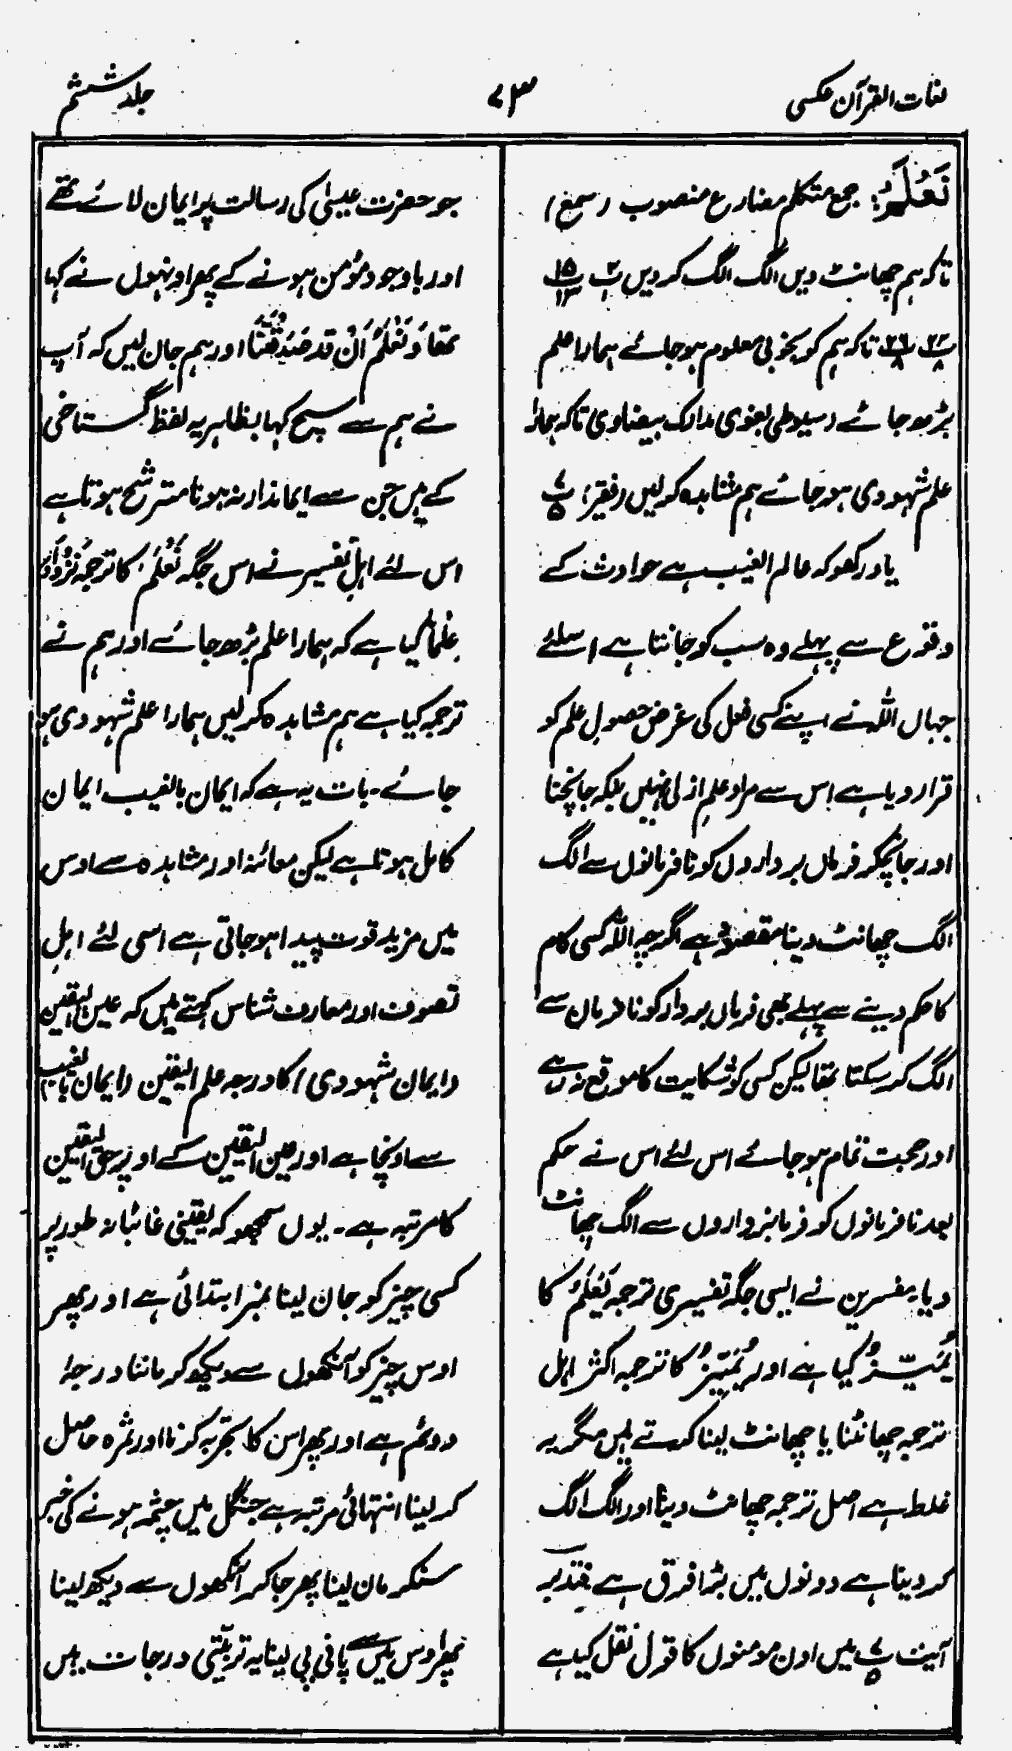 لغات القرآن عکسی
۷۳
جلد ششم
نَعْلَمَ: جمع متکلم مضارع منصوب (سمع)
تاکہ ہم چھانٹ دیں الگ الگ کردیں پ۲ ۱ پ۱۵ ۱۳
پ۲۲ ۸ پ۲۶ ۸ تاکہ ہم کو بخوبی معلوم ہوجائے ہمارا علم
بڑھ جائے (سیوطی بغوی مدارک بیضاوی تاکہ ہمارا
علم شہودی ہوجائے ہم مشاہدہ کرلیں (فقیر) پ۷ ۵
یاد رکھو کہ عالم الغیب ہے حوادث کے
وقوع سے پہلے وہ سب کو جانتا ہے اسلئے
جہاں اللہ نے اپنے کسی فعل کی غرض حصول علم کو
قرار دیا ہے اس سے مراد علمِ ازلی نہیں بلکہ جانچنا
اور جانچکر فرماں برداروں کو نافرمانوں سے الگ
الگ چھانٹ دینا مقصود ہے اگرچہ اللہ کسی کام
کا حکم دینے سے پہلے بھی فرماں بردار کو نافرمان سے
الگ کرسکتا تھا لیکن کسی کو شکایت کا موقع نہ رہے
اور حجت تمام ہوجائے اس لئے اس نے حکم
بعد نافرمانوں کو فرمانبرداروں سے الگ چھانٹ
دیا۔ مفسرین نے ایسی جگہ تفسیری ترجمہ یَعْلَمُ کا
یُمَیِّزُ کیا ہے اور نُمَیِّزُ کا ترجمہ اکثر اہل
ترجمہ چھانٹنا یا چھانٹ لینا کرتے ہیں مگر یہ
غلط ہے اصل ترجمہ چھانٹ دینا اور الگ الگ
کردینا ہے دونوں میں بڑا فرق ہے فتدبر
آیت پ۷ ۵ میں اون مومنوں کا قول نقل کیا ہے
جو حضرت عیسیٰ کی رسالت پر ایمان لائے تھے
اور باوجود مؤمن ہونے کے پھر اونہوں نے کہا
تھا وَنَعْلَمُ اَنْ قَدْ صَدَقْتَنَا اور ہم جان لیں کہ آپ
نے ہم سے سچ کہا بظاہر یہ لفظ گستاخی
کے ہیں جن سے ایماندار نہ ہونا مترشح ہوتا ہے
اس لئے اہلِ تفسیر نے اس جگہ نَعْلَمَ کا ترجمہ نَزْدَادَ
عِلْمًا کیا ہے کہ ہمارا علم بڑھ جائے اور ہم نے
ترجمہ کیا ہے ہم مشاہدہ کرلیں ہمارا علم شہودی ہو
جائے۔ بات یہ ہے کہ ایمان بالغیب ایمان
کامل ہوتا ہے لیکن معائنہ اور مشاہدہ سے اوس
میں مزید قوت پیدا ہوجاتی ہے اسی لئے اہل
تصوف اور معارف شناس کہتے ہیں کہ عین الیقین
(ایمان شہودی) کا درجہ علم الیقین (ایمان بالغیب)
سے اونچا ہے اور عین الیقین کے اوپر حق الیقین
کا مرتبہ ہے۔ یوں سمجھو کہ یقینی غائبانہ طور پر
کسی چیز کو جان لینا نمبر ابتدائی ہے اور پھر
اوس چیز کو آنکھوں سے دیکھ کر ماننا درجۂ
دوئم ہے اور پھر اس کا تجربہ کرنا اور ثمرہ حاصل
کرلینا انتہائی مرتبہ ہے جنگل میں چشمہ ہونے کی خبر
سنکر مان لینا پھر جاکر آنکھوں سے دیکھ لینا
پھر اوس میں سے پانی پی لینا یہ ترتیبی درجات ہیں